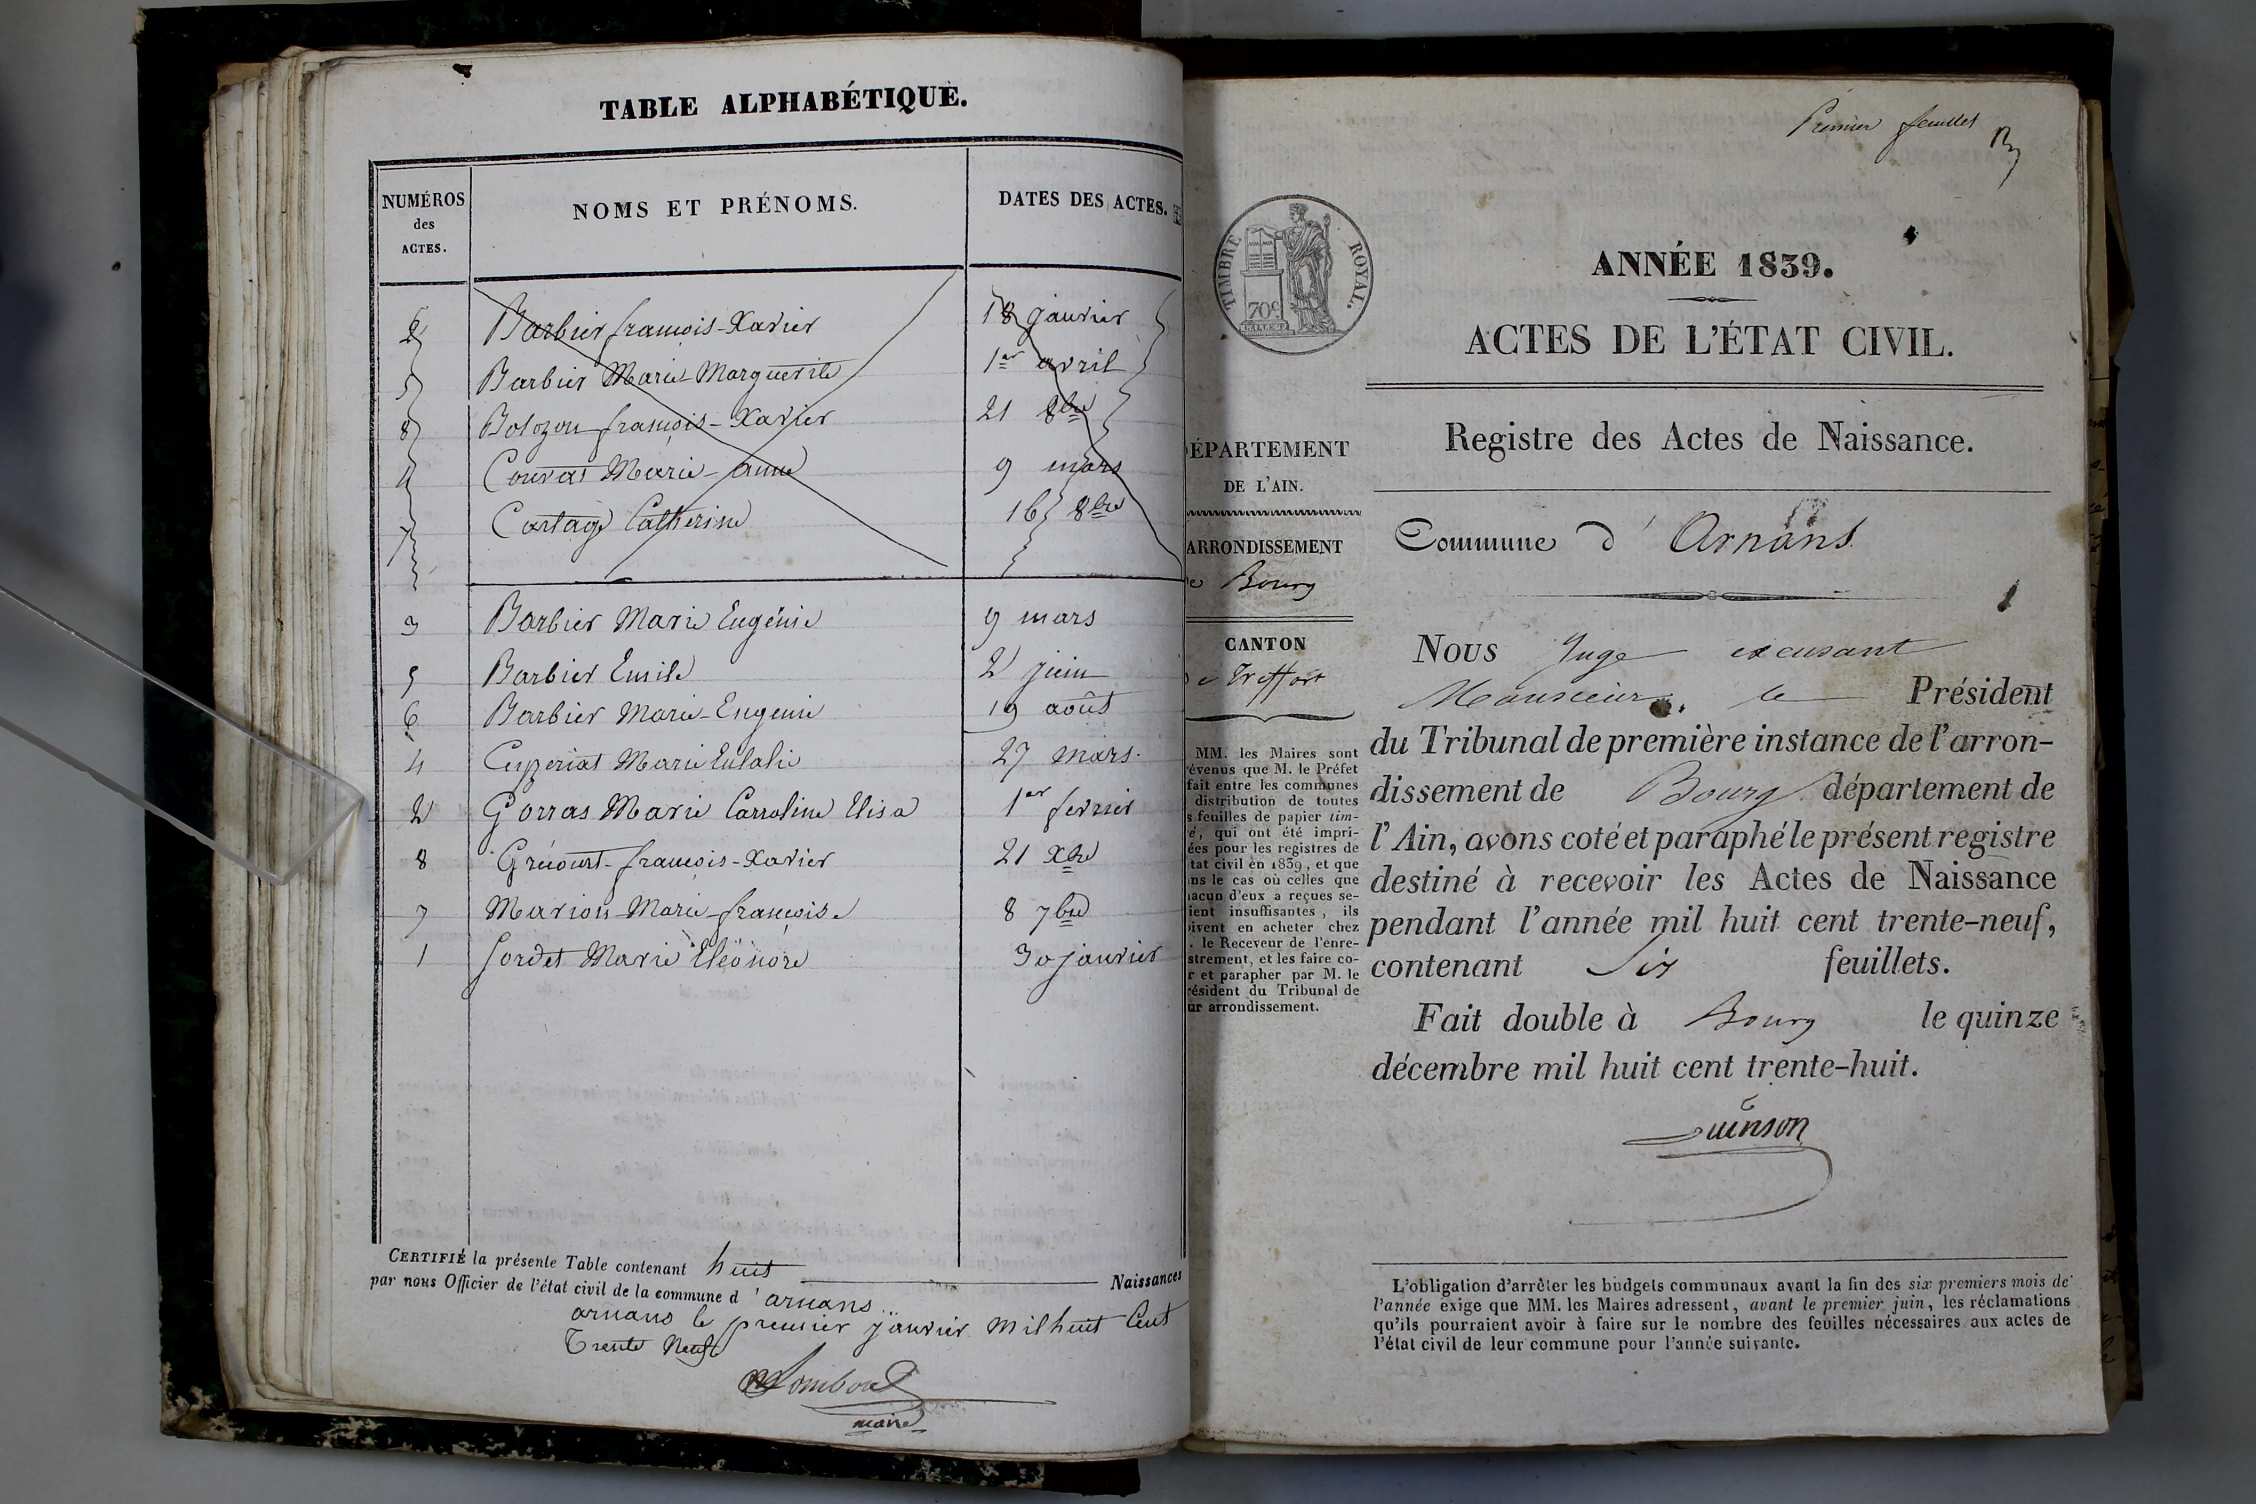 TABLE ALPHABÉTIQUE.
NUMÉROS des ACTES.
NOMS ET PRÉNOMS.
DATES DES ACTES.
2 Barbier françois-Xavier 18 janvier
5 Barbier Marie-Marguerite 1er avril
8 Bolozon françois-Xavier 21 8bre
4 Convat Marie-Anne 9 mars
7 Cartage Catherine 16 8bre
3 Barbier Marie Eugénie 9 mars
5 Barbier Emile 2 juin
6 Barbier Marie-Eugenie 19 août
4 Cuzeriat Marie Eulalie 27 mars.
2 Gorras Marie Carroline Elisa 1er fevrier
8 Grécourt-françois-Xavier 21 Xbre
7 Marion-Marie-françoise 8 7bre
1 Sordet Marie Eléonore 30 janvier
CERTIFIÉ la présente Table contenant huit Naissances
par nous Officier de l'état civil de la commune d'arnans
arnans le premier janvier mil huit Cent
Trente Neuf
maire
Premier feuillet
TIMBRE ROYAL.
70c
ANNÉE 1839.
ACTES DE L'ÉTAT CIVIL.
Registre des Actes de Naissance.
Commune d'Arnans
ÉPARTEMENT
DE L'AIN.
ARRONDISSEMENT
de Bourg
CANTON
de Treffort
MM. les Maires sont
évenus que M. le Préfet
fait entre les communes
distribution de toutes
s feuilles de papier tim-
é, qui ont été impri-
ées pour les registres de
tat civil en 1839, et que
ns le cas où celles que
acun d'eux a reçues se-
ient insuffisantes, ils
ivent en acheter chez
. le Receveur de l'enre-
strement, et les faire co-
r et parapher par M. le
résident du Tribunal de
ur arrondissement.
Nous Juge excusant
Monsieur le Président
du Tribunal de première instance de l'arron-
dissement de Bourg département de
l'Ain, avons coté et paraphé le présent registre
destiné à recevoir les Actes de Naissance
pendant l'année mil huit cent trente-neuf,
contenant Six feuillets.
Fait double à Bourg le quinze
décembre mil huit cent trente-huit.
L'obligation d'arrêter les budgets communaux avant la fin des six premiers mois de
l'année exige que MM. les Maires adressent, avant le premier juin, les réclamations
qu'ils pourraient avoir à faire sur le nombre des feuilles nécessaires aux actes de
l'état civil de leur commune pour l'année suivante.